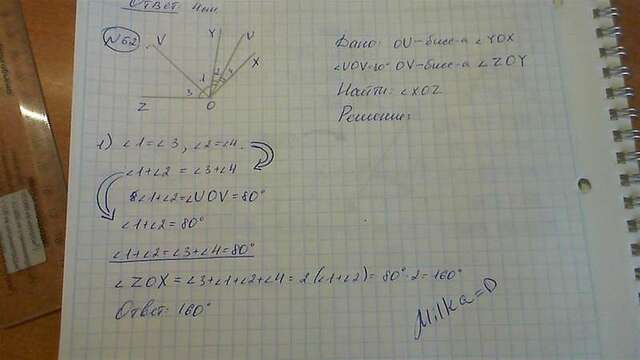 Ответ: 4см
№62
V Y U X
1 2 4 3
Z O
Дано: OU-бисс-а ∠YOX
∠UOV=80° OV-бисс-а ∠ZOY
Найти: ∠XOZ
Решение:
1) ∠1=∠3, ∠2=∠4.
∠1+∠2 = ∠3+∠4
∠1+∠2=∠UOV=80°
∠1+∠2=80°
∠1+∠2=∠3+∠4=80°
∠ZOX=∠3+∠1+∠2+∠4=2(∠1+∠2)=80°·2=160°
Ответ: 160°
Milka=D